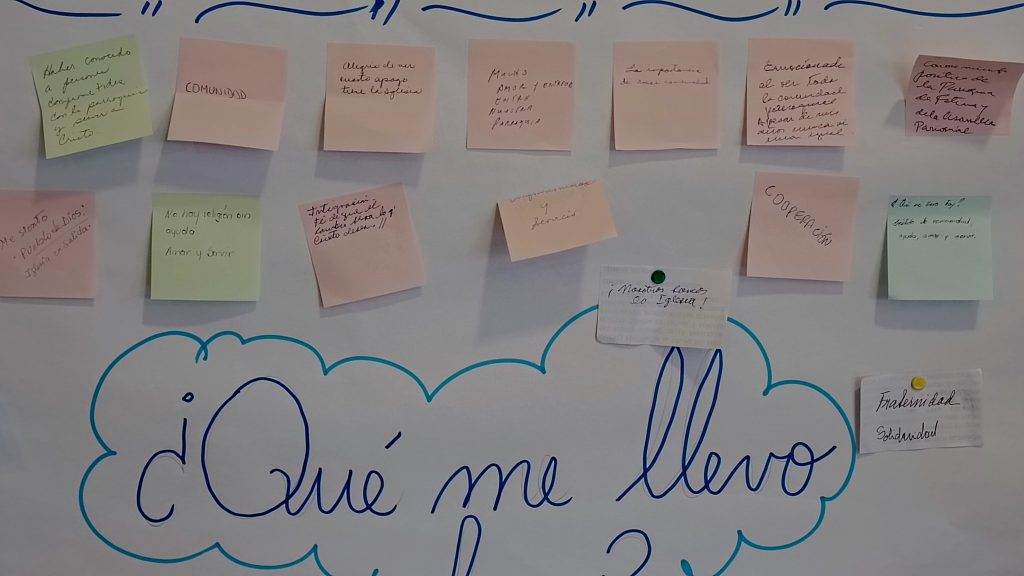 Haber conocido
a personas
comprometidas
con la parroquia
y servir a
Cristo.
COMUNIDAD
Alegria de ver
cuanto apoyo
tiene la Iglesia
MUCHO
AMOR Y
ENTRE
NUESTRA
PARROQUIA
La importancia
de una comunidad
Emocionada
al ver toda
la comunidad
A pesar de
positivo de
la Parroquia
de Fatima y
de la Asamblea
Parroquial
Me siento
"Pueblo de Dios"
Iglesia en salida.
No hay religión sin
ayuda!
Amor y Servir
Integración
Y
Servicio
COOPERACIÓN
¿Qué me llevo hoy?
de comunidad,
ayuda, amor y
¡Nosotros somos
la Iglesia!
Fraternidad
Solidaridad
¿Qué me llevo